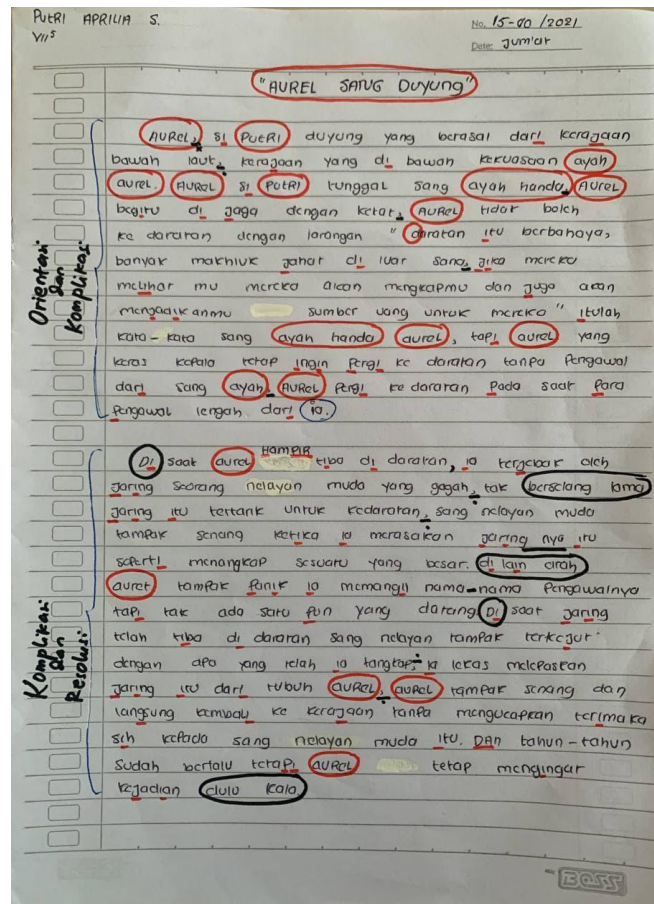 PUTRI APRILIA S.
VII⁵
No. 15-00/2021
Date: Jum'at
"AUREL SANG DUYUNG"
AUREL, si PUTRI duyung yang berasal dari kerajaan
bawah laut, kerajaan yang di bawah kekuasaan ayah
aurel. AUREL si PUTRI tunggal sang ayah handa, AUREL
begitu di jaga dengan ketat, AUREL tidak boleh
ke daratan dengan larangan "daratan itu berbahaya,
banyak makhluk jahat di luar sana, jika mereka
melihat mu mereka akan mengkapmu dan juga akan
mengadikanmu sumber uang untuk mereka" itulah
kata-kata sang ayah handa aurel, tapi aurel yang
keras kepala tetap ingin pergi ke daratan tanpa Pengawal
dari sang ayah. AUREL Pergi ke daratan Pada saat Para
Pengawal lengah dari ia.
Orientasi dan Komplikasi
Di saat aurel HAMPIR tiba di daratan, ia tergebak oleh
jaring seorang nelayan muda yang gagah, tak berselang lama
jaring itu tertarik untuk kedaratan, sang nelayan muda
tampak senang ketika ia merasakan jaring nya itu
seperti menangkap sesuatu yang besar. di lain arah
aurel tampak Panik ia memangil nama-nama Pengawalnya
tapi tak ada satu Pun yang datang Di saat jaring
telah tiba di daratan sang nelayan tampak terkejut
dengan apa yang telah ia tangkap, ia lekas melepaskan
jaring itu dari tubuh AUREL, AUREL tampak senang dan
langsung kembali ke kerajaan tanpa mengucapkan terimaka
sih kepada sang nelayan muda itu. DAN tahun-tahun
sudah berlalu tetapi AUREL tetap mengingat
kejadian dulu kala
Komplikasi dan Resolusi
BOSS